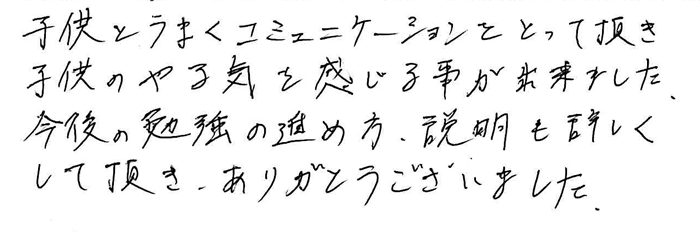 子供とうまくコミュニケーションをとって頂き
子供のやる気を感じる事が出来ました、
今後の勉強の進め方、説明も詳しく
して頂き、ありがとうございました、